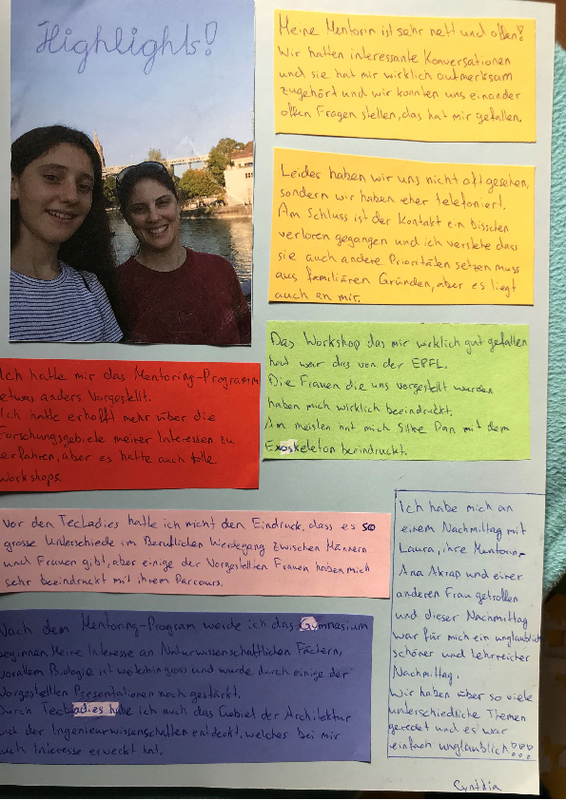 Highlights!
Meine Mentorin ist sehr nett und offen!
Wir hatten interessante Konversationen
und sie hat mir wirklich aufmerksam
zugehört und wir konnten uns einander
offen Fragen stellen, das hat mir gefallen.
Leides haben wir uns nicht oft gesehen,
sondern wir haben eher telefoniert.
Am Schluss ist der Kontakt ein bisschen
verloren gegangen und ich verstehe dass
sie auch andere Prioritäten setzen muss
aus familiären Gründen, aber es liegt
auch an mir.
Das Workshop das mir wirklich gut gefallen
hat war das von der EPFL.
Die Frauen die uns vorgestellt wurden
haben mich wirklich beeindruckt.
Am meisten hat mich Silke Pan mit dem
Exoskeleton beeindruckt.
Ich hatte mir das Mentoring-Programm
etwas anders Vorgestellt.
Ich hatte erhofft mehr über die
Forschungsgebiete meiner Interessen zu
erfahren, aber es hatte auch tolle
Workshops.
Vor den TecLadies hatte ich nicht den Eindruck, dass es so
grosse Unterschiede im Beruflichen Werdegang zwischen Männern
und Frauen gibt, aber einige der Vorgestellten Frauen haben mich
sehr beeindruckt mit ihrem Parcours.
Nach dem Mentoring-Program werde ich das Gymnasium
beginnen. Meine Interesse an Naturwissenschaftlichen Fächern,
vorallem Biologie ist weiterhin gross und wurde durch einige der
Vorgestellten Presentationen noch gestärkt.
Durch TecLadies habe ich auch das Gebiet der Architektur
und der Ingenieurwissenschaften entdeckt, welches bei mir
auch Interesse erweckt hat.
Ich habe mich an
einem Nachmittag mit
Laura, ihre Mentorin
Ana Akrap und einer
anderen Frau getroffen
und dieser Nachmittag
war für mich ein unglaublich
schöner und lehrreicher
Nachmittag.
Wir haben über so viele
unterschiedliche Themen
geredet und es war
einfach unglaublich!!!
Cynthia